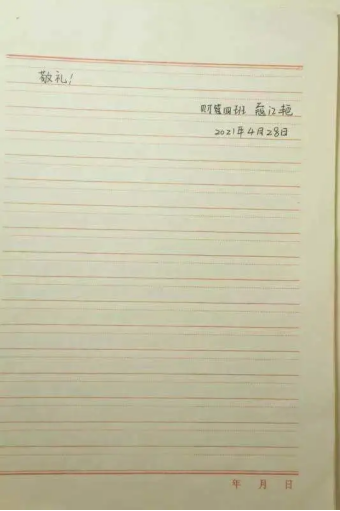 敬礼!
财管四班 江艳
2021年4月28日
年 月 日